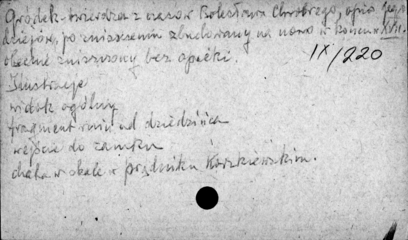 Gródek-twierdza z czasów Bolesława Chrobrego, opis jego
dziejów, po zniszczeniu zbudowany na nowo w końcu w. XVII.
obecnie zniszczony bez opieki.
IX/220
Ilustracje
widok ogólny
fragment ruin od dziedzińca
wejście do zamku
chata w skale w prądniku Korzkiewskim.